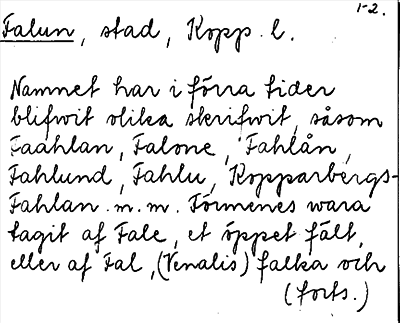 1-2.
Falun, stad, Kopp. l.
Namnet har i förra tider
blifwit olika skrifwit, såsom
Faahlan, Falone, Fahlån,
Fahlund, Fahlu, Kopparbergs-
Fahlan m.m. Förmenes wara
tagit af Fale, et öppet fält,
eller af Fal, (Venalis) falka och
(forts.)